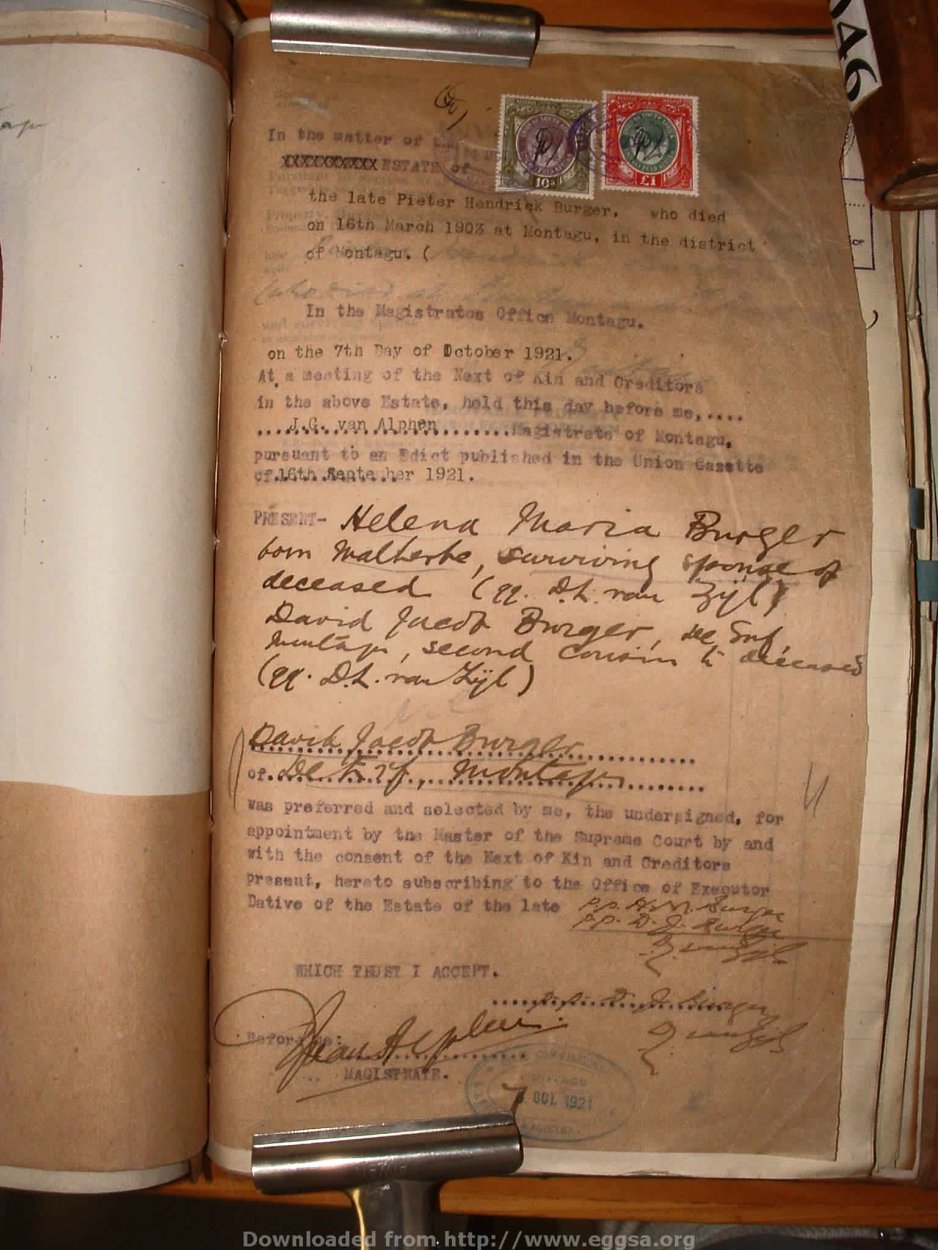 046
In the matter of the
XXXXXXXXXX ESTATE of
10s
£1
the late Pieter Hendrick Burger, who died
on 16th March 1903 at Montagu, in the district
of Montagu. (
In the Magistrates Office Montagu.
on the 7th Day of October 1921.
At a meeting of the Next of Kin and Creditors
in the above Estate, held this day before me,.....
....J.G. van Alphen.......Magistrate of Montagu,
pursuant to an Edict published in the Union Gazette
of.16th.September 1921.
PRESENT- Helena Maria Burger
born Malherbe, surviving spouse of
deceased (qq. D.L. van Zijl)
David Jacob Burger, De Erf,
Montagu, second cousin to deceased
(qq. D.L. van Zijl)
David Jacob Burger
of. De Erf, Montagu
was preferred and selected by me, the undersigned, for
appointment by the Master of the Supreme Court by and
with the consent of the Next of Kin and Creditors
present, hereto subscribing to the Office of Executor
Dative of the Estate of the late
p.p. H.M. Burger
p.p. D.J. Burger
D van Zijl
WHICH TRUST I ACCEPT.
p.p. D. J. Burger
D van Zijl
Before me:
JG van Alphen
MAGISTRATE.
7 OCT. 1921
Downloaded from http://www.eggsa.org